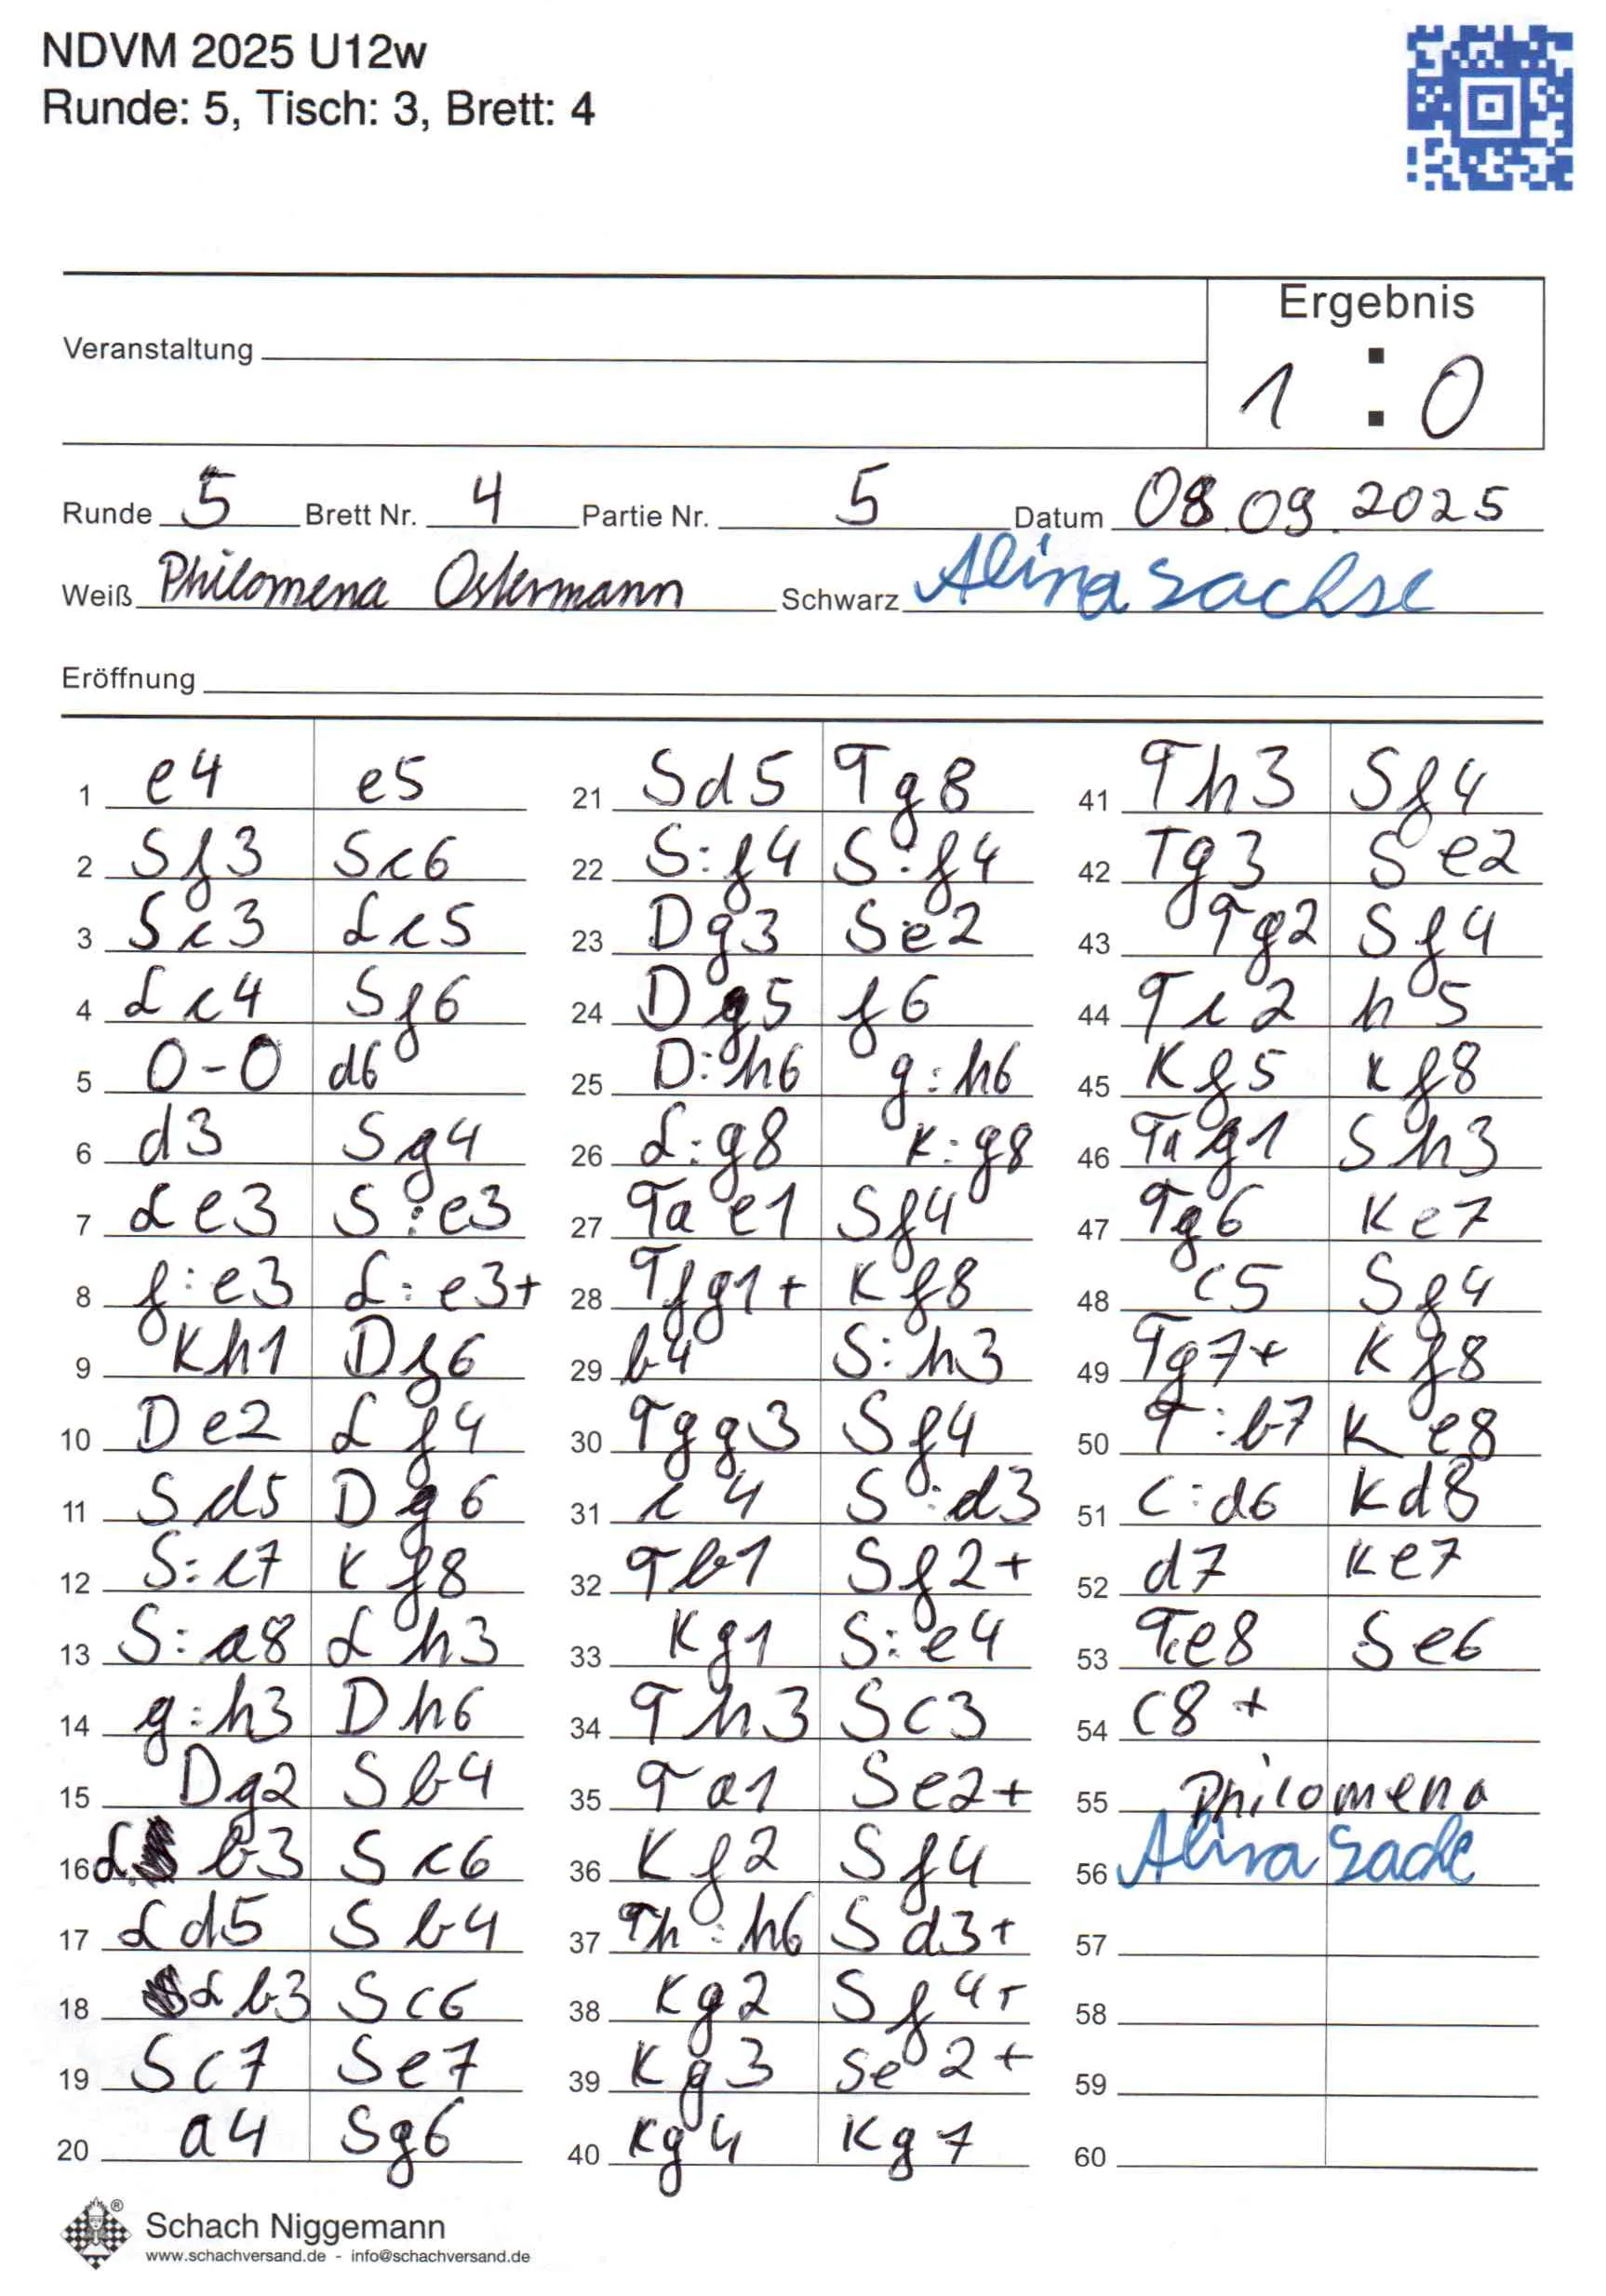 NDVM 2025 U12w
Runde: 5, Tisch: 3, Brett: 4
Ergebnis
Veranstaltung
1 : 0
Runde 5 Brett Nr. 4 Partie Nr. 5 Datum 08.09.2025
Weiß Philomena Ostermann Schwarz Alina Sachse
Eröffnung
1 e4 e5 21 Sd5 Tg8 41 Th3 Sf4
2 Sf3 Sc6 22 S:f4 S:f4 42 Tg3 Se2
3 Sc3 Lc5 23 Dg3 Se2 43 Tg2 Sf4
4 Lc4 Sf6 24 Dg5 f6 44 Tc2 h5
5 0-0 d6 25 D:h6 g:h6 45 Kf5 Kf8
6 d3 Sg4 26 L:g8 K:g8 46 Tag1 Sh3
7 Le3 S:e3 27 Tae1 Sf4 47 Tg6 Ke7
8 f:e3 L:e3+ 28 Tfg1+ Kf8 48 c5 Sf4
9 Kh1 Df6 29 b4 S:h3 49 Tg7+ Kf8
10 De2 Lf4 30 Tgg3 Sf4 50 T:b7 Ke8
11 Sd5 Dg6 31 c4 S:d3 51 c:d6 Kd8
12 S:c7 Kf8 32 Tb1 Sf2+ 52 d7 Ke7
13 S:a8 Lh3 33 Kg1 S:e4 53 Tc8 Se6
14 g:h3 Dh6 34 Th3 Sc3 54 c8+
15 Dg2 Sb4 35 Ta1 Se2+ 55 Philomena
16 Lb3 Sc6 36 Kf2 Sf4 56 Alina Sache
17 Ld5 Sb4 37 Th:h6 Sd3+ 57
18 Lb3 Sc6 38 Kg2 Sf4+ 58
19 Sc7 Se7 39 Kg3 Se2+ 59
20 a4 Sg6 40 Kg4 Kg7 60
®
Schach Niggemann
www.schachversand.de - info@schachversand.de